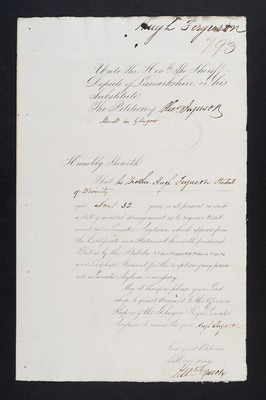 Hugh Ferguson
793
Unto The Honble The Sheriff
Depute of Lanarkshire, or his
Substitute.
The Petition of Thos Ferguson
in Glasgow
Humbly Sheweth
That his Brother Hugh Ferguson Student
of Divinity
aged about 32 years is at present in such
a state of mental derangement as to require treat-
ment in a Lunatic Asylum, which appears from
the Certificate and Statement herewith produced
That by the Statutes
your Lordship's Warrant for the reception of any person
into a Lunatic Asylum is necessary
May it therefore please your Lord-
ship to grant Warrant to the
Keeper of the Glasgow Royal Lunatic
Asylum to receive the said Hugh Ferguson
Ferguson